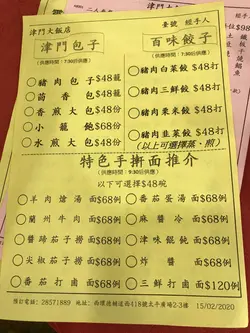 津門大飯店
壹號 經手人
津門包子
(供應時間:7:30前供應)
○豬肉包子$48籠
○茴香包$48籠
○香煎大包$48份
○小籠飽$68份
○水煎大包$48份
百味餃子
(供應時間:7:30前供應)
○豬肉白菜餃$48打
○豬肉三鮮餃$48打
○豬肉粟米餃$48打
○豬肉韭菜餃$48打
(以上可選擇蒸、煎)
特色手擀面推介
(供應時間:9:30前供應)
以下可選擇$48碗
○羊肉燴湯面$68例
○蘭州牛肉面$68例
○醬蹄茄子撈面$68例
○尖椒茄子撈面$68例
○番茄打鹵面$68例
○番茄蛋湯面$68例
○麻醬冷面$68例
○津味餛飩面$68例
○炸醬面$68例
○三鮮打鹵面$120例
預訂電話:28571889 地址:西環德輔道西418號太平廣場2-3樓 15/02/2020